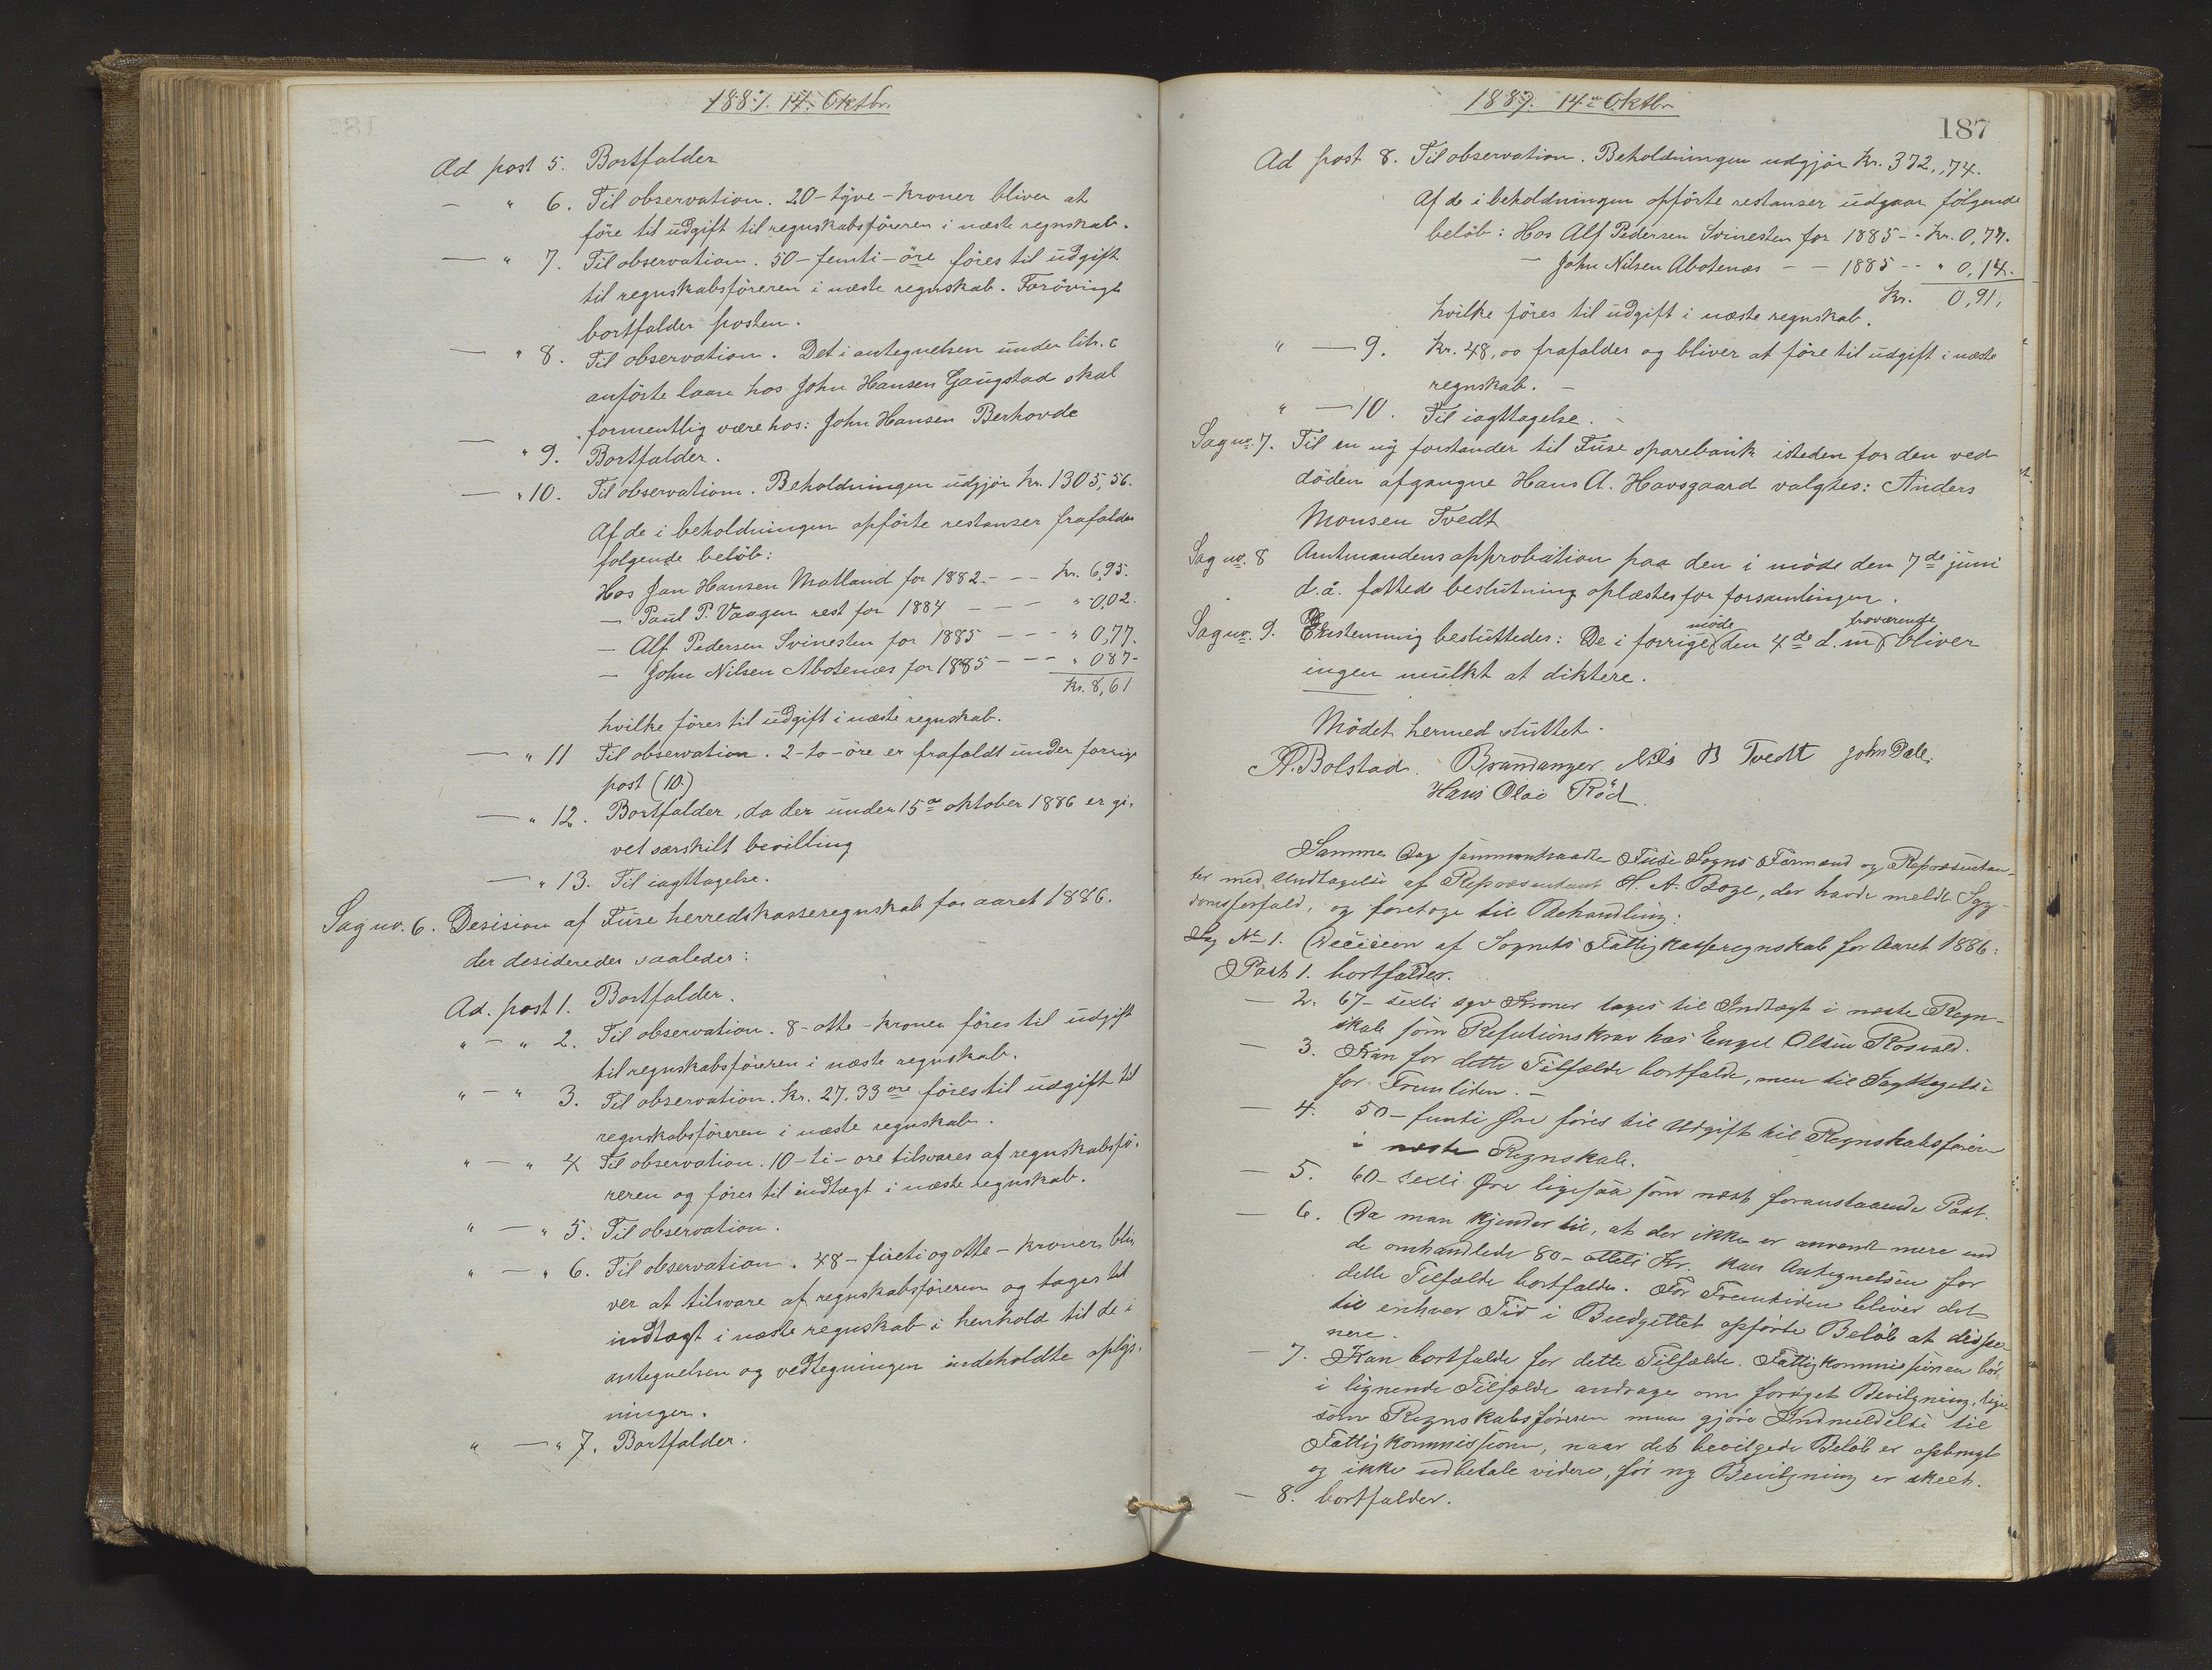 1887. 14. Oktbr.
Ad post 5. Bortfalder
— " 6. Til observation. 20 - tyve - kroner bliver at
føre til udgift til regnskabsføreren i næste regnskab.
— " 7. Til observation. 50 - femti - øre føres til udgift
til regnskabsføreren i næste regnskab. Forøvrigt
bortfalder posten.
— " 8. Til observation. Det i antegnelsen under litr. c
anførte laan hos John Hansen Gaugstad skal
formentlig være hos: John Hansen Berhovde
— " 9. Bortfalder.
— " 10. Til observation. Beholdningen udgjør kr. 1305,56.
Af de i beholdningen opførte restanser frafaldes
følgende beløb:
Hos Jan Hansen Matland for 1882 - - - kr. 6,95.
— Paul P. Vaagen rest for 1884 - - - " 0,02.
— Alf Pedersen Svinesten for 1885 - - - " 0,77.
— John Nilsen Abotenæs for 1885 - - - " 087-
kr. 8,61
hvilke føres til udgift i næste regnskab.
— " 11 Til observation. 2 - to - øre er frafaldt under forrige
post (10.)
— " 12. Bortfalder, da der under 15de oktober 1886 er gi-
vet særskilt bevilling
— " 13. Til iagttagelse.
Sag no. 6. Desision af Fuse herredskasseregnskab for aaret 1886.
der desideredes saaledes:
Ad. post 1. Bortfalder.
" — " 2. Til observation. 8 - otte - kroner føres til udgift
til regnskabsføreren i næste regnskab.
" — " 3. Til observation. kr. 27.33 øre føres til udgift til
regnskabsføreren i næste regnskab.
" — " 4 Til observation. 10 - ti - øre tilsvares af regnskabsfø-
reren og føres til indtægt i næste regnskab.
" — " 5. Til observation.
" — " 6. Til observation. 48 - firetiogotte - kroner bli-
ver at tilsvare af regnskabsføreren og tages til
indtægt i næste regnskab i henhold til de i
antegnelsen og vedtegningen indeholdte oplys-
ninger.
" — " 7. Bortfalder.
1887. 14de Oktbr.
187
Ad post 8. Til observation. Beholdningen udgjør kr. 372,74.
Af de i beholdningen opførte restanser udgaar følgende
beløb: Hos Alf Pedersen Svinesten for 1885 - - kr. 0,77.
— John Nilsen Abotenæs - - 1885 - - " 0,14.
kr. 0,91,
hvilke føres til udgift i næste regnskab.
" — 9. kr. 48,00 frafalder og bliver at føre til udgift i næste
regnskab. -
" — 10. Til iagttagelse.
Sag no. 7. Til en ny forstander til Fuse sparebank isteden for den ved
døden afgangne Hans A. Havsgaard valgtes: Anders
Monsen Tvedt
Sag no. 8 Amtmandens approbation paa den i møde den 7de juni
d.å. fattede beslutning oplæstes for forsamlingen.
Sag no. 9. Enstemmig besluttedes: De i forrige møde den 4de d.m. fraværende bliver
ingen mulkt at diktere.
Mødet hermed sluttet.
A. Bolstad. Brandanger. Nils B Tvedt John Dale.
Hans Olai Rød.
Samme Dag sammentraadte Fuse Sogns Formænd og Repræsentan-
ter med Undtagelse af Repræsentant H. A. Boge, der havde meldt Syg-
domsforfald, og foretoge til Behandling:
Sag No 1. Decision af Sognets Fattigkasseregnskab for Aaret 1886:
Post 1. bortfalder.
— 2. 67 - sexti syv Kroner tages til Indtægt i næste Regn-
skab som Refutionskrav hos Engel Olsen Rosvald.
— 3. Kan for dette Tilfælde bortfalde, men til Iagttagelse
for Fremtiden. -
— 4. 50 - femti Øre føres til Udgift til Regnskabsføreren
i næste Regnskab.
— 5. 60 - sexti Øre ligesaa som næst foranstaaende Post.
— 6. Da man kjender til, at der ikke er anvendt mere end
de omhandlede 80 - otteti Kr. kan Antegnelsen for
dette Tilfælde bortfalde. For Fremtiden bliver det
til enhver Tid i Budgettet opførte Beløb at dispo-
nere.
— 7. Kan bortfalde for dette Tilfælde. Fattigkommissionen bør
i lignende Tilfælde andrage om forøget Bevilgning, lige-
som Regnskabsføreren maa gjøre Indmeldelse til
Fattigkommissionen, naar det bevilgede Beløb er opbrugt
og ikke udbetale videre, før ny Bevilgning er skeet.
— 8. bortfalder.